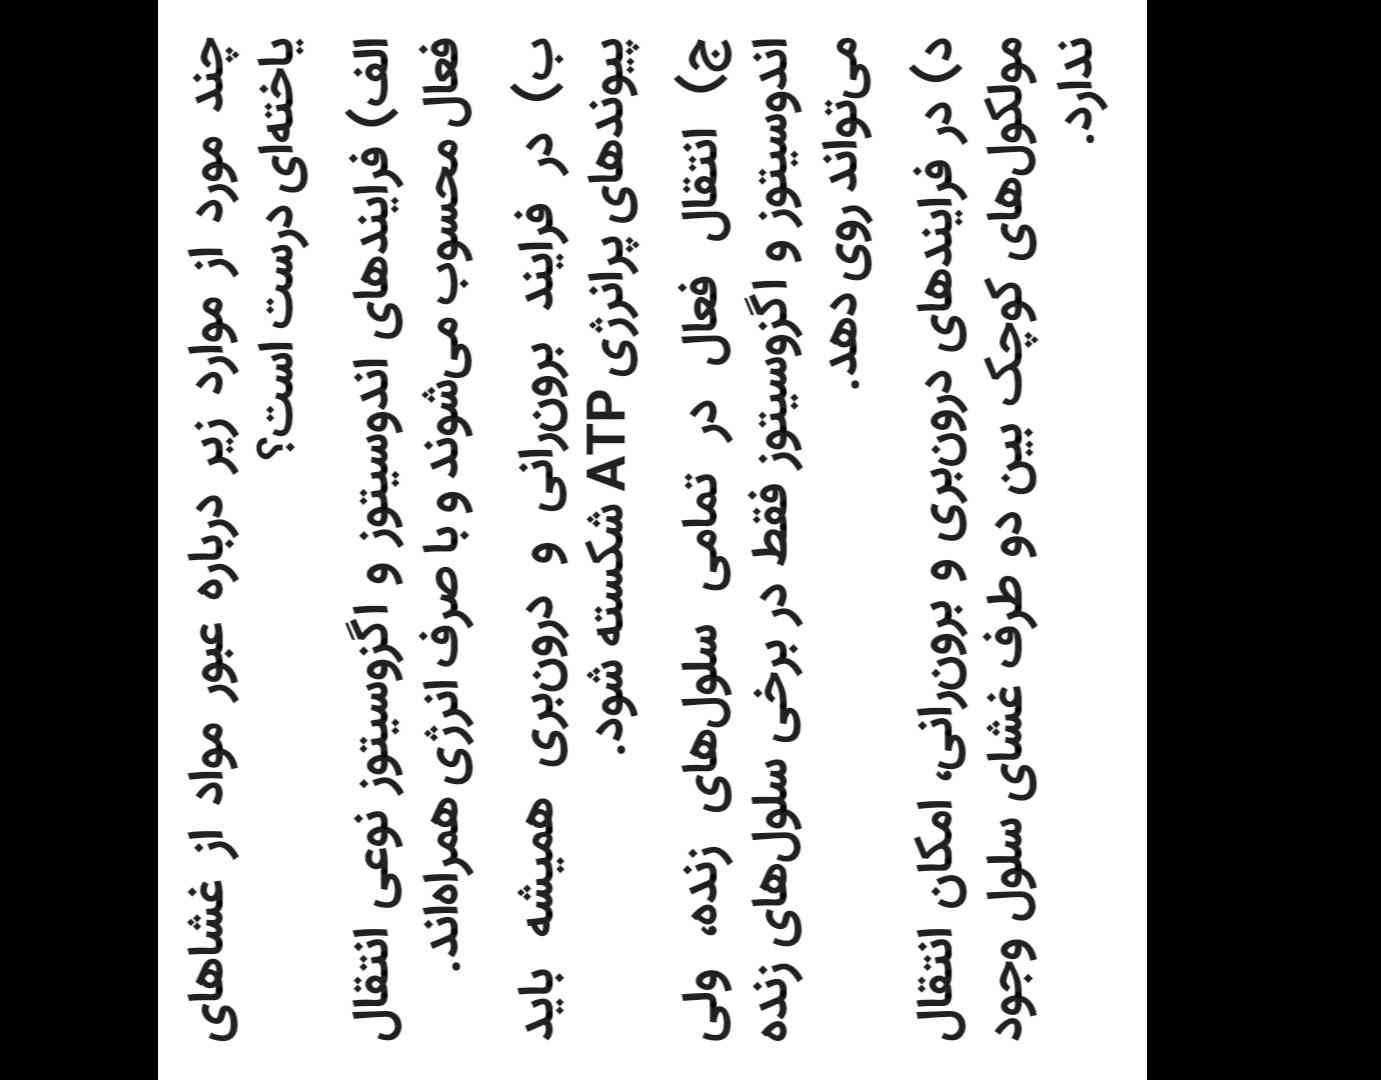 چند مورد از موارد زیر درباره عبور مواد از غشاهای
یاخته‌ای درست است؟
الف) فرایندهای اندوسیتوز و اگزوسیتوز نوعی انتقال
فعال محسوب می‌شوند و با صرف انرژی همراه‌اند.
ب) در فرایند برون‌رانی و درون‌بری همیشه باید
پیوندهای پرانرژی ATP شکسته شود.
ج) انتقال فعال در تمامی سلول‌های زنده، ولی
اندوسیتوز و اگزوسیتوز فقط در برخی سلول‌های زنده
می‌تواند روی دهد.
د) در فرایندهای درون‌بری و برون‌رانی، امکان انتقال
مولکول‌های کوچک بین دو طرف غشای سلول وجود
ندارد.